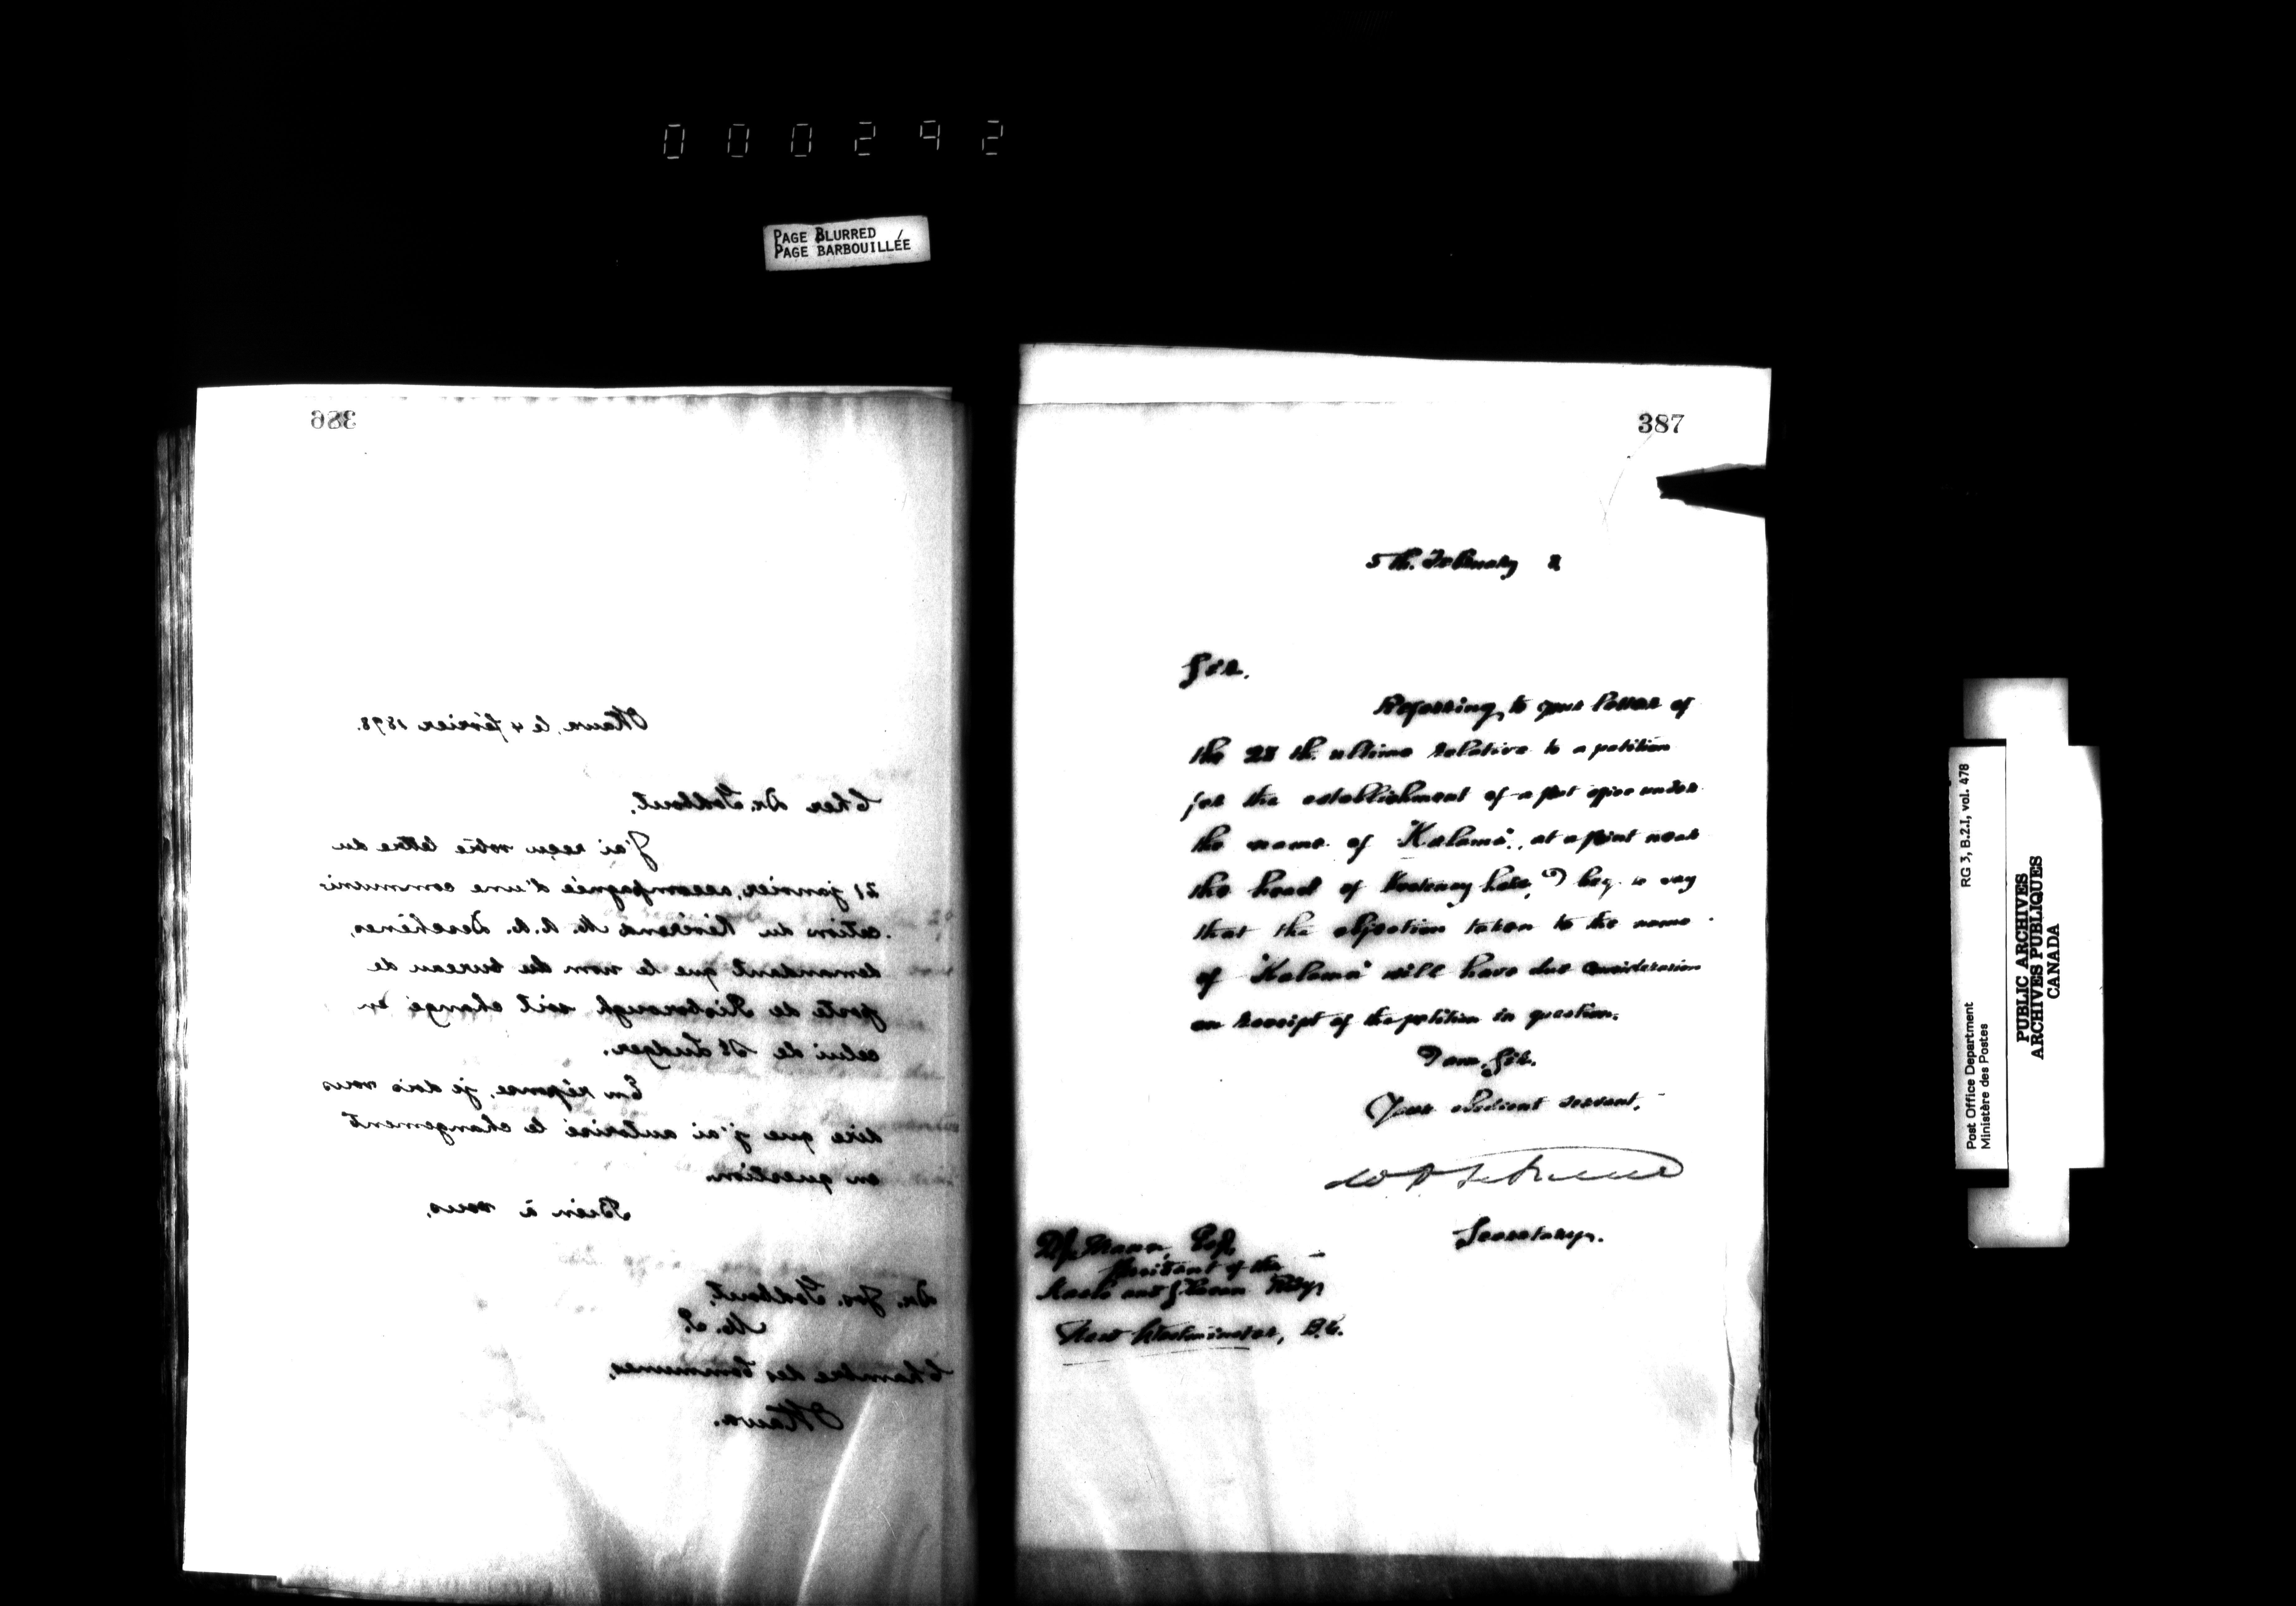 000292
PAGE BLURRED /
PAGE BARBOUILLÉE
386
Ottawa, le 4 février 1898.
Cher Dr. Godbout,
J'ai reçu votre lettre du
21 janvier, accompagnée d'une communi-
cation du Révérend M. A. A. Deschênes,
demandant que le nom du bureau de
poste de Risborough soit changé en
celui de St Ludger.
En réponse, je dois vous
dire que j'ai autorisé le changement
en question.
Bien à vous,
Dr. Jos. Godbout,
M. P.
Chambre des Communes,
Ottawa.
387
5th. February 8
Sir,
Referring to your letter of
the 28th. ultimo relative to a petition
for the establishment of a post office under
the name of "Kalama", at a point near
the head of Kootenay Lake, I beg to say
that the objection taken to the name
of "Kalama" will have due consideration
on receipt of the petition in question.
I am, Sir,
Your obedient servant,
Secretary.
Mann, Esq,
President of the
Kaslo and Slocan Rlwy
New Westminster, B.C.
RG 3, B.2.1, vol. 478
Post Office Department
Ministère des Postes
PUBLIC ARCHIVES
ARCHIVES PUBLIQUES
CANADA